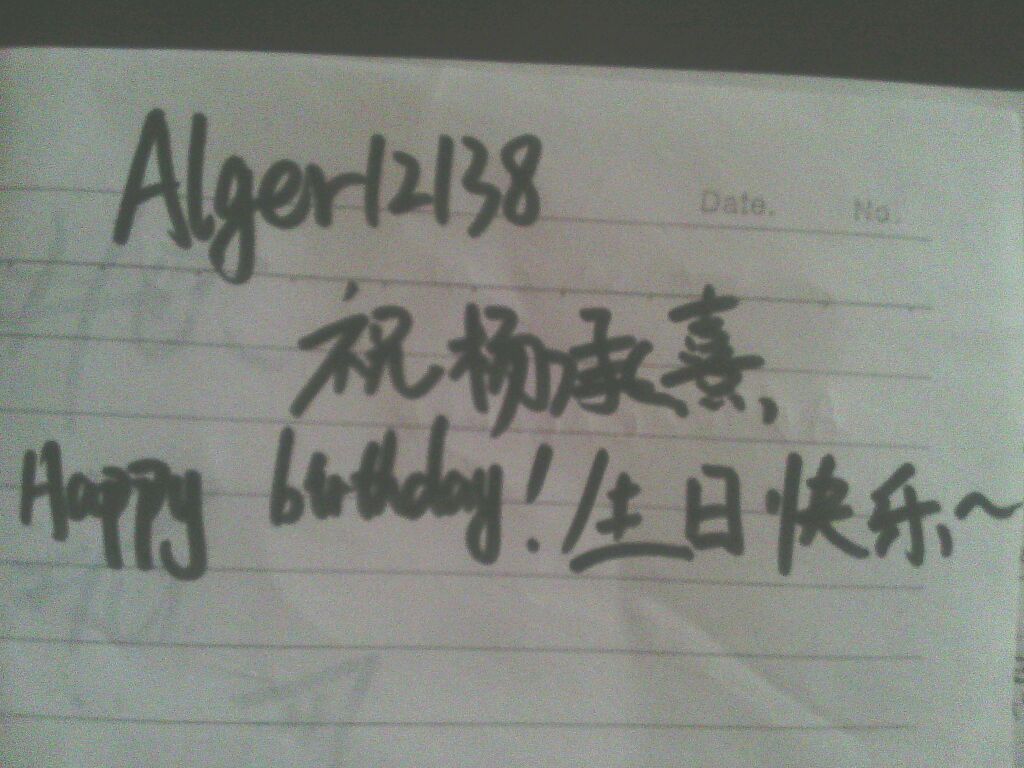 Alger12138
Date. No.
祝杨承熹
Happy birthday! 生日快乐~